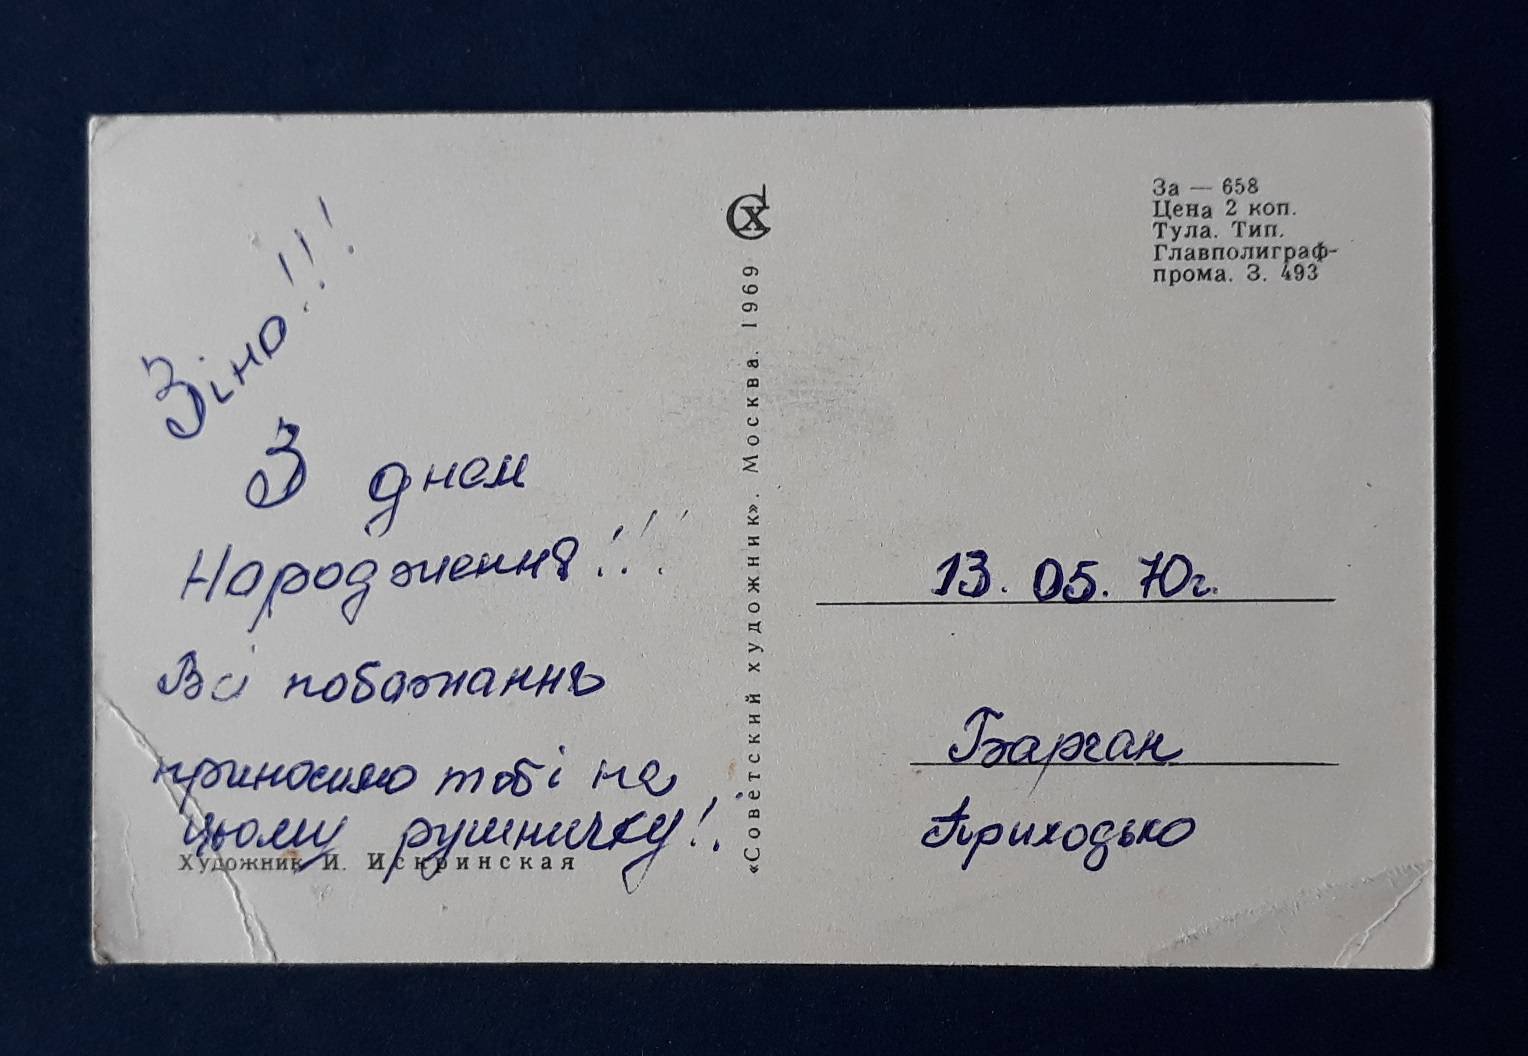 Зіно!!!
З днем
Народження!!!
Всі побажання
приносимо тобі на
цьому рушничку!.
Художник И. Искринская
«Советский художник». Москва. 1969
СХ
За — 658
Цена 2 коп.
Тула. Тип.
Главполиграф-
прома. З. 493
13. 05. 70г.
Барган
Приходько